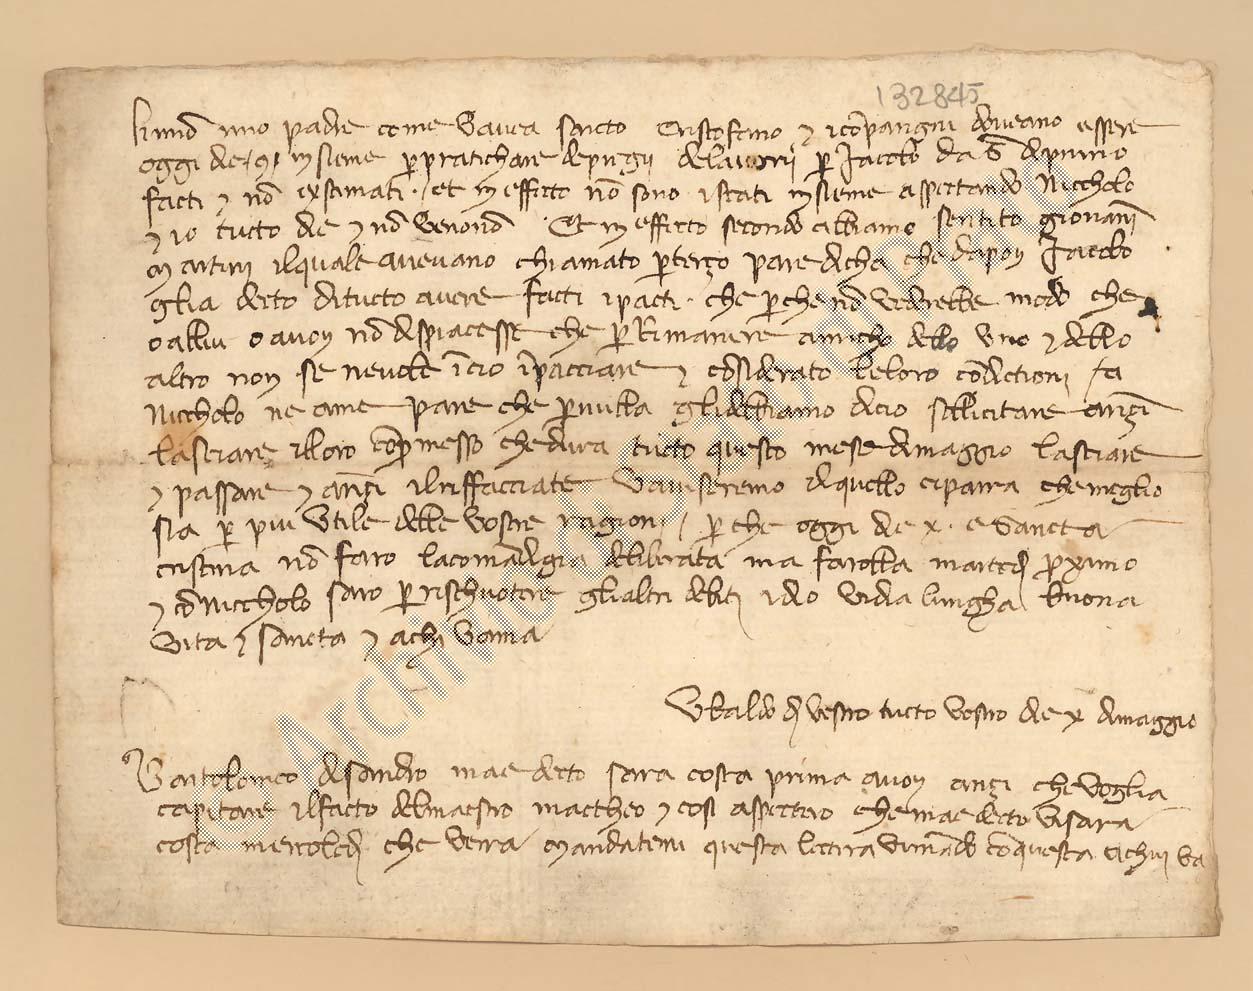 132845
padre come savea sancto Cristofano 7 i conpangni doveano essere
oggi dì 9 insieme per pratichare de pregii de lavorii per Jacobo da
facti 7 non exstimati. et in effecto non sono istati insieme aspectando Niccholo
7 io tucto dìe 7 non venono Et in effecto secondo abbiamo sentito giovanni
martini il quale avevano chiamato per terço pare dicha che dapoi Jacobo
glia decto di tucto avere facti i pacti. che perche non vederebbe modo che
o a llui o a voy non dispiacesse che per Rimanere amicho dello uno 7 dello
altro non se ne vole in cio inpacciare 7 considerato le loro condictioni a
Niccholo ne a me pare che per nulla gli debbiamo di cio sollicitare ançi
lasciare il loro conpromesso che dura tucto questo mese di maggio lasciare
7 passare 7 ançi il riffacciate v aviseremo di quello ci parra che meglio
sia per piu utile delle vostre ragioni. perche oggi dìe x. e sancta
cristina non faro la deliberata ma farolla martedì proximo
7 con Niccholo saro per rischuotere gli altri debiti idio vi dia lungha buona
vita 7 sancta 7 a chi v ama
Ubaldo di vestro tucto vostro dìe x di maggio
Bartolomeo di sandro m ae decto sara costa prima a voy ançi che voglia
capitare il facto del maestro mactheo 7 cosi aspectero che m ae decto vi sara
costa mercoledì che verra mandatemi questa lectera con questa a chui va
© Archivio di Stato